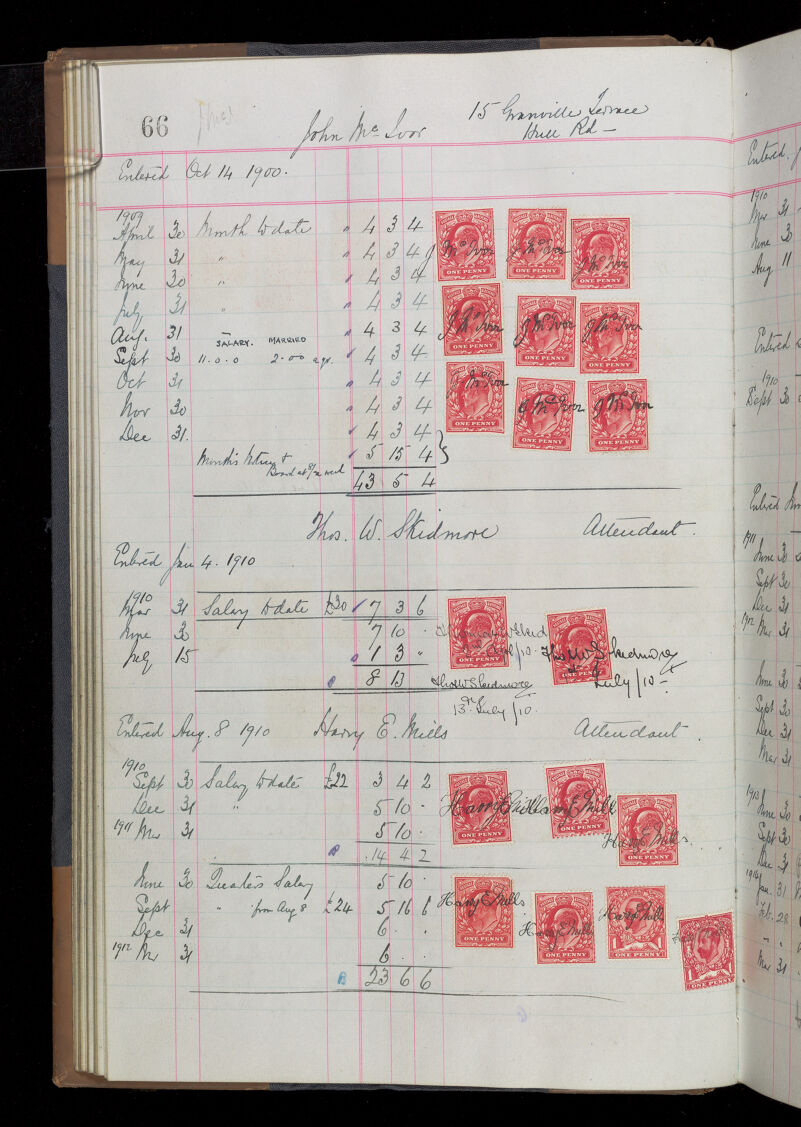 66
John Mc Ivor
15 Granville Terrace
Hull Rd —
Entered Oct 14 1900.
1909
April 30 Month to date " 4 3 4
May 31 " " 4 3 4
June 30 " 4 3 4
July 31 " 4 3 4
Aug. 31 " 4 3 4
SALARY. MARRIED
Sept 30 11.0.0 2.00 4 3 4
Oct 31 " 4 3 4
Nov 30 4 3 4
Dec 31. 4 3 4
Month's Notice & 5 15 4
Board at week
43 5 4
Mc Ivor
J Mc Ivor
J Mc Ivor
J Mc Ivor
J Mc Ivor
J Mc Ivor
J Mc Ivor
J Mc Ivor
J Mc Ivor
ONE PENNY
ONE PENNY
ONE PENNY
ONE PENNY
ONE PENNY
ONE PENNY
ONE PENNY
ONE PENNY
ONE PENNY
Thos. W. Skidmore Attendant.
Entered Jan 4. 1910
1910
Mar 31 Salary to date £30 7 3 6
June 30 7 10 .
July 15 1 3 "
8 13
Thos W Skidmore
July/10 —
Thos W Skidmore
13th July/10.
ONE PENNY
ONE PENNY
Entered Aug. 8 1910 Harry E. Mills Attendant
1910
Sept 30 Salary to date £22 3 4 2
Dec 31 " 5 10 .
1911 Mar 31 5 10 .
14 4 2
Harry E Mills
Harry E Mills
ONE PENNY
ONE PENNY
ONE PENNY
June 30 Quarters Salary 5 10 .
Sept " from Aug 8 £24 5 16 6
Dec 31 6 . .
1912 Mr 31 6 . .
23 6 6
Harry E Mills
Harry E Mills
Harry E Mills
ONE PENNY
ONE PENNY
1 ONE PENNY 1
1 ONE PENNY 1
Entered
1910
Mar 31
June 30
Aug 11
Entered
1910
Sept 30
Entered
1911
June 30
Sept 30
Dec 31
1912 Mar 31
June 30
Sept 30
Dec 31
Mar 31
June 30
Sept 30
Dec 31
Jan. 31
Feb. 28
Mar 31